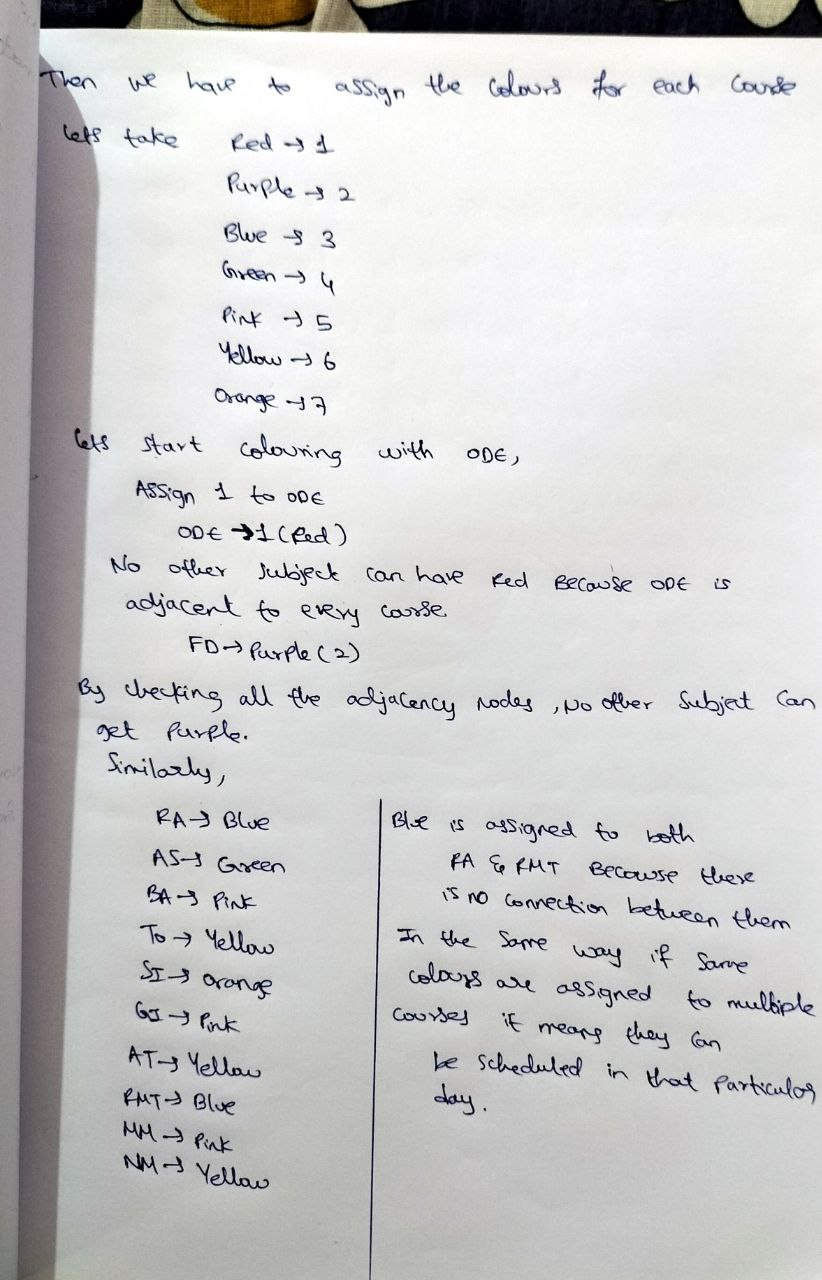 Then we have to assign the colours for each course
lets take Red → 1
Purple → 2
Blue → 3
Green → 4
Pink → 5
Yellow → 6
Orange → 7
lets start colouring with ODE,
Assign 1 to ODE
ODE → 1 (Red)
No other subject can have Red Because ODE is
adjacent to every course
FD → Purple (2)
By checking all the adjacency nodes, No other Subject Can
get Purple.
Similarly,
RA → Blue
AS → Green
BA → Pink
To → Yellow
SI → orange
GI → Pink
AT → Yellow
RMT → Blue
MM → Pink
NM → Yellow
Blue is assigned to both
RA & RMT Because there
is no connection between them
In the Same way if Same
colours are assigned to multiple
courses it means they Can
be scheduled in that Particular
day.